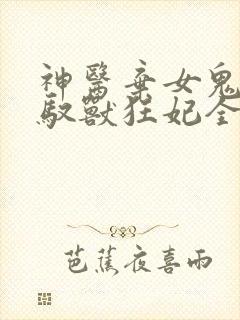 神醫棄女鬼
馭獸狂妃全
芭蕉夜喜雨